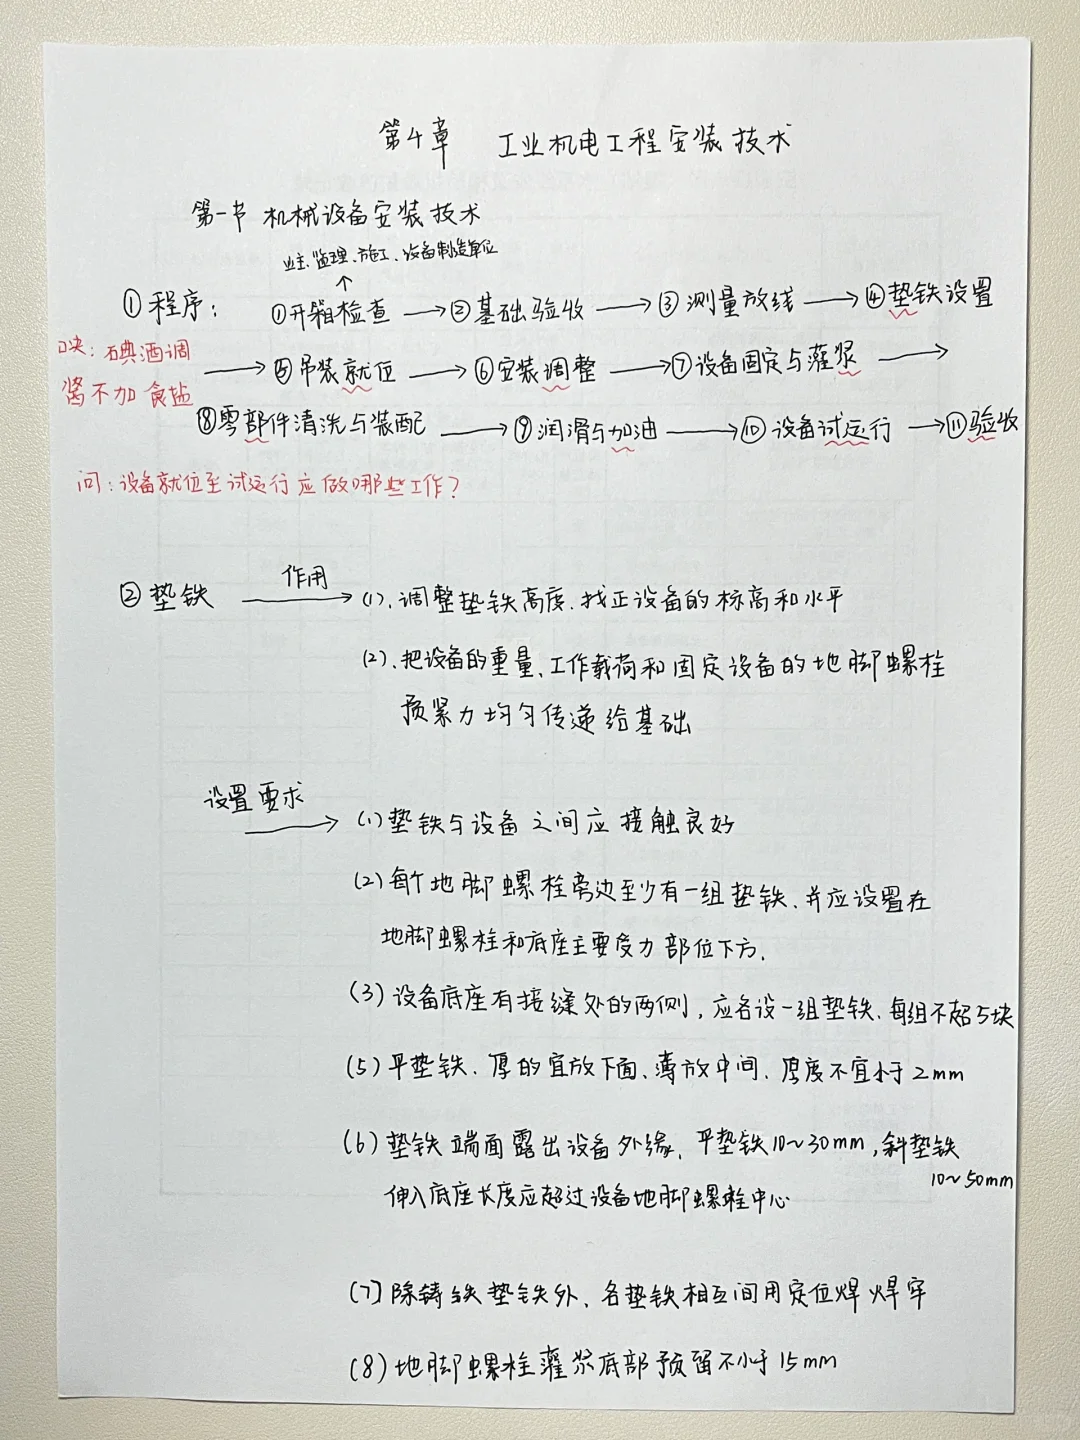 第4章 工业机电工程安装技术
第一节 机械设备安装技术
业主、监理、施工、设备制造单位
↑
①程序: ①开箱检查 → ②基础验收 → ③测量放线 → ④垫铁设置
口诀: 碘酒调
酱不加食盐
→ ⑤吊装就位 → ⑥安装调整 → ⑦设备固定与灌浆 →
⑧零部件清洗与装配 → ⑨润滑与加油 → ⑩设备试运行 → ⑪验收
问:设备就位至试运行应做哪些工作?
②垫铁 作用 → (1)、调整垫铁高度、找正设备的标高和水平
(2)、把设备的重量、工作载荷和固定设备的地脚螺栓
预紧力均匀传递给基础
设置要求 → (1)垫铁与设备之间应接触良好
(2)每个地脚螺栓旁边至少有一组垫铁、并应设置在
地脚螺栓和底座主要受力部位下方.
(3)设备底座有接缝处的两侧,应各设一组垫铁、每组不超5块
(5)平垫铁、厚的宜放下面、薄放中间、厚度不宜小于2mm
(6)垫铁端面露出设备外缘、平垫铁10~30mm,斜垫铁
10~50mm
伸入底座长度应超过设备地脚螺栓中心
(7)除铸铁垫铁外、各垫铁相互间用定位焊焊牢
(8)地脚螺栓灌浆底部预留不小于15mm